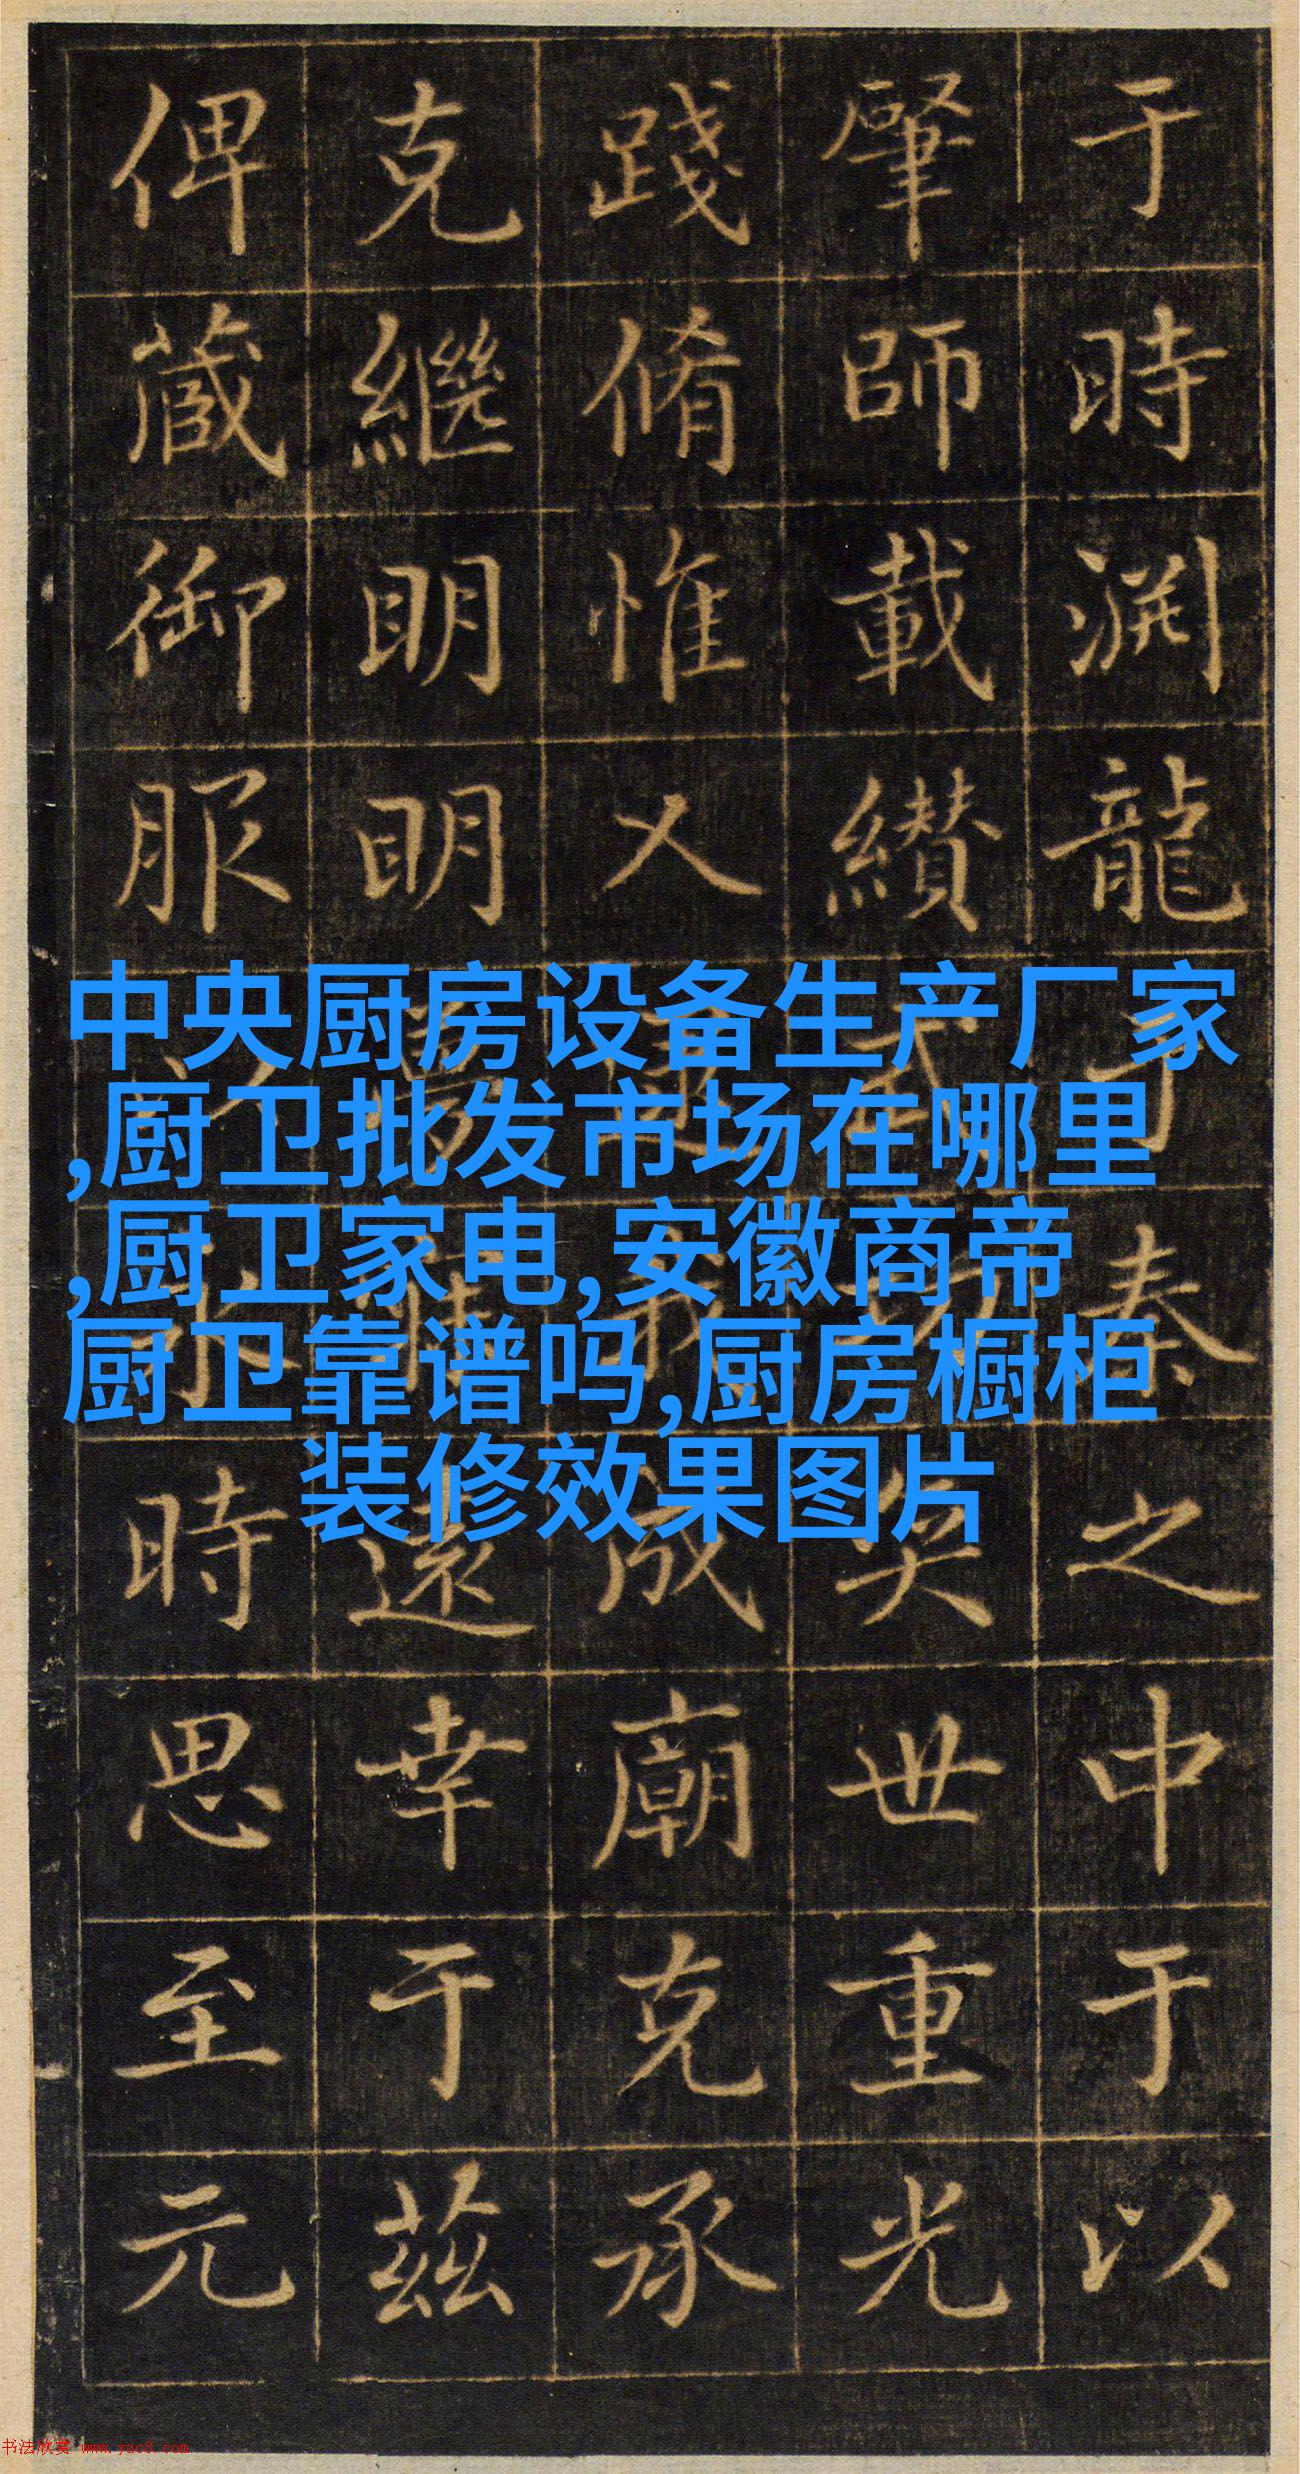 于時渊龍于秦之中于以
肇師載纘武功奕世重光
踐脩惟乂我成廟克承
克繼明明惟遠幸于茲
俾蔵御服以永時思至元
中央厨房设备生产厂家
,厨卫批发市场在哪里
,厨卫家电,安徽商帝
厨卫靠谱吗,厨房橱柜
装修效果图片
书法欣赏 www.yac8.com